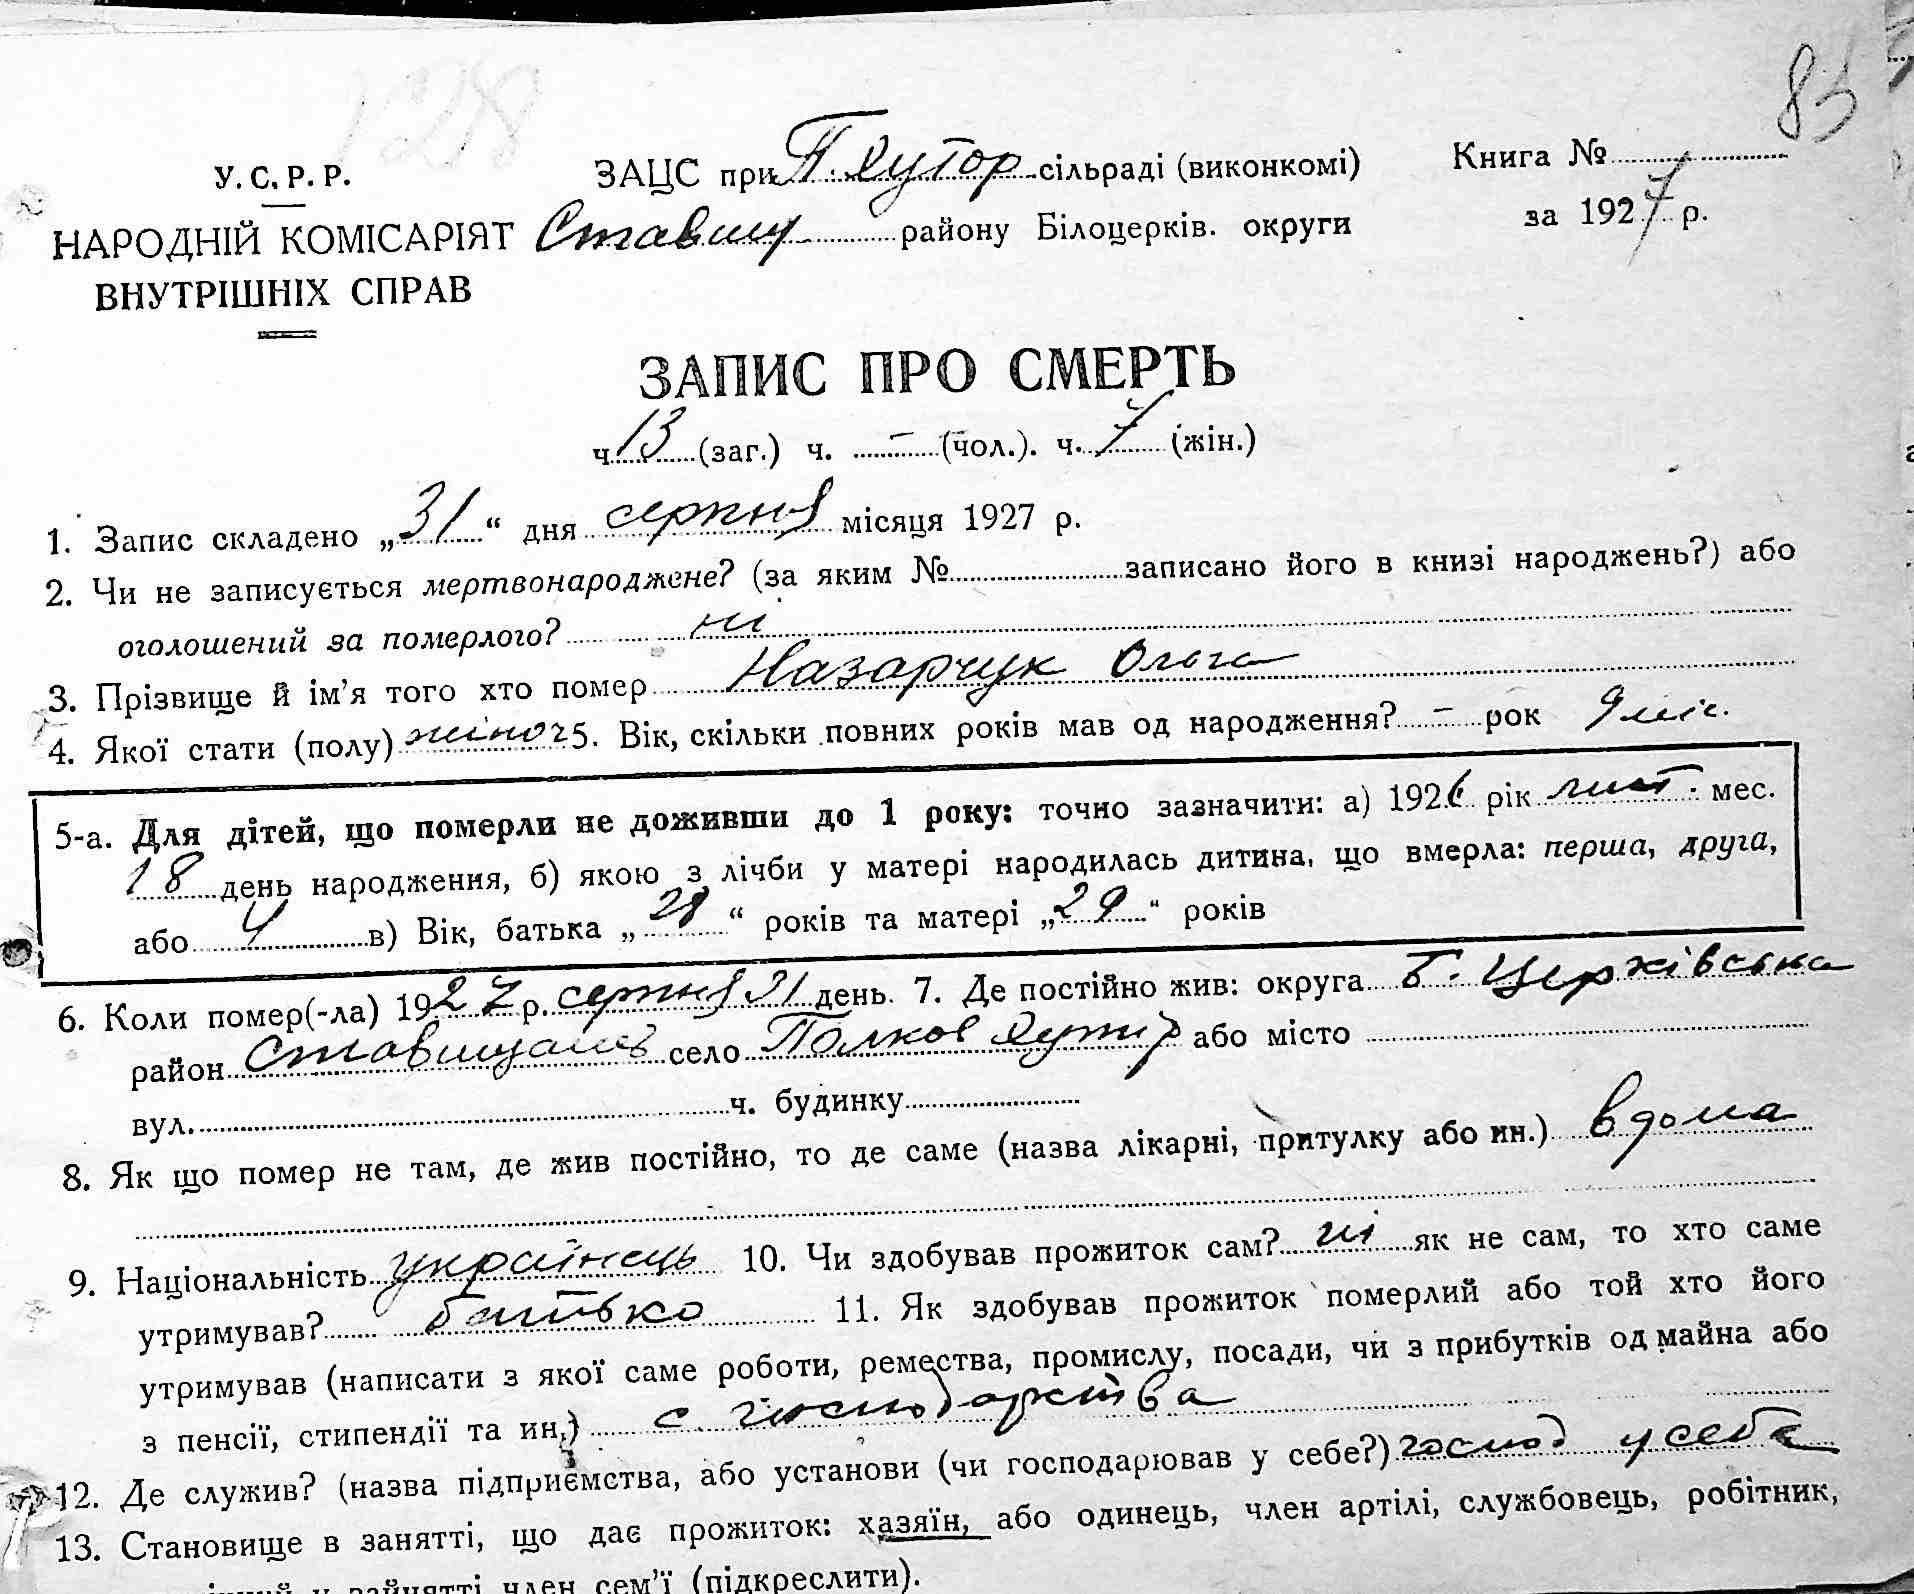 83
128
У. С. Р. Р.
НАРОДНІЙ КОМІСАРІЯТ
ВНУТРІШНІХ СПРАВ
ЗАЦС при П. Хутор сільраді (виконкомі)
Ставищ району Білоцерків. округи
Книга №
за 1927 р.
ЗАПИС ПРО СМЕРТЬ
ч. 13 (заг.) ч. – (чол.). ч. 7 (жін.)
1. Запис складено „31“ дня серпня місяця 1927 р.
2. Чи не записується мертвонароджене? (за яким № записано його в книзі народжень?) або
оголошений за померлого? ні
3. Прізвище й ім’я того хто помер Назарчук Ольга
4. Якої стати (полу) жіноч 5. Вік, скільки повних років мав од народження? – рок 9 міс.
5-а. Для дітей, що померли не доживши до 1 року: точно зазначити: а) 1926 рік лист. мес.
18 день народження, б) якою з лічби у матері народилась дитина, що вмерла: перша, друга,
або 4 в) Вік, батька „28“ років та матері „29“ років
6. Коли помер(-ла) 1927 р. серпня 31 день. 7. Де постійно жив: округа Б. Церківська
район Ставищанс село Полков Хутір або місто
вул. ч. будинку
8. Як що помер не там, де жив постійно, то де саме (назва лікарні, притулку або ин.) вдома
9. Національність українець 10. Чи здобував прожиток сам? ні як не сам, то хто саме
утримував? батько 11. Як здобував прожиток померлий або той хто його
утримував (написати з якої саме роботи, ремества, промислу, посади, чи з прибутків од майна або
з пенсії, стипендії та ин.) с господарства
12. Де служив? (назва підприємства, або установи (чи господарював у себе?) господ у себе
13. Становище в занятті, що дає прожиток: хазяїн, або одинець, член артілі, службовець, робітник,
у зайнятті член сем’ї (підкреслити).